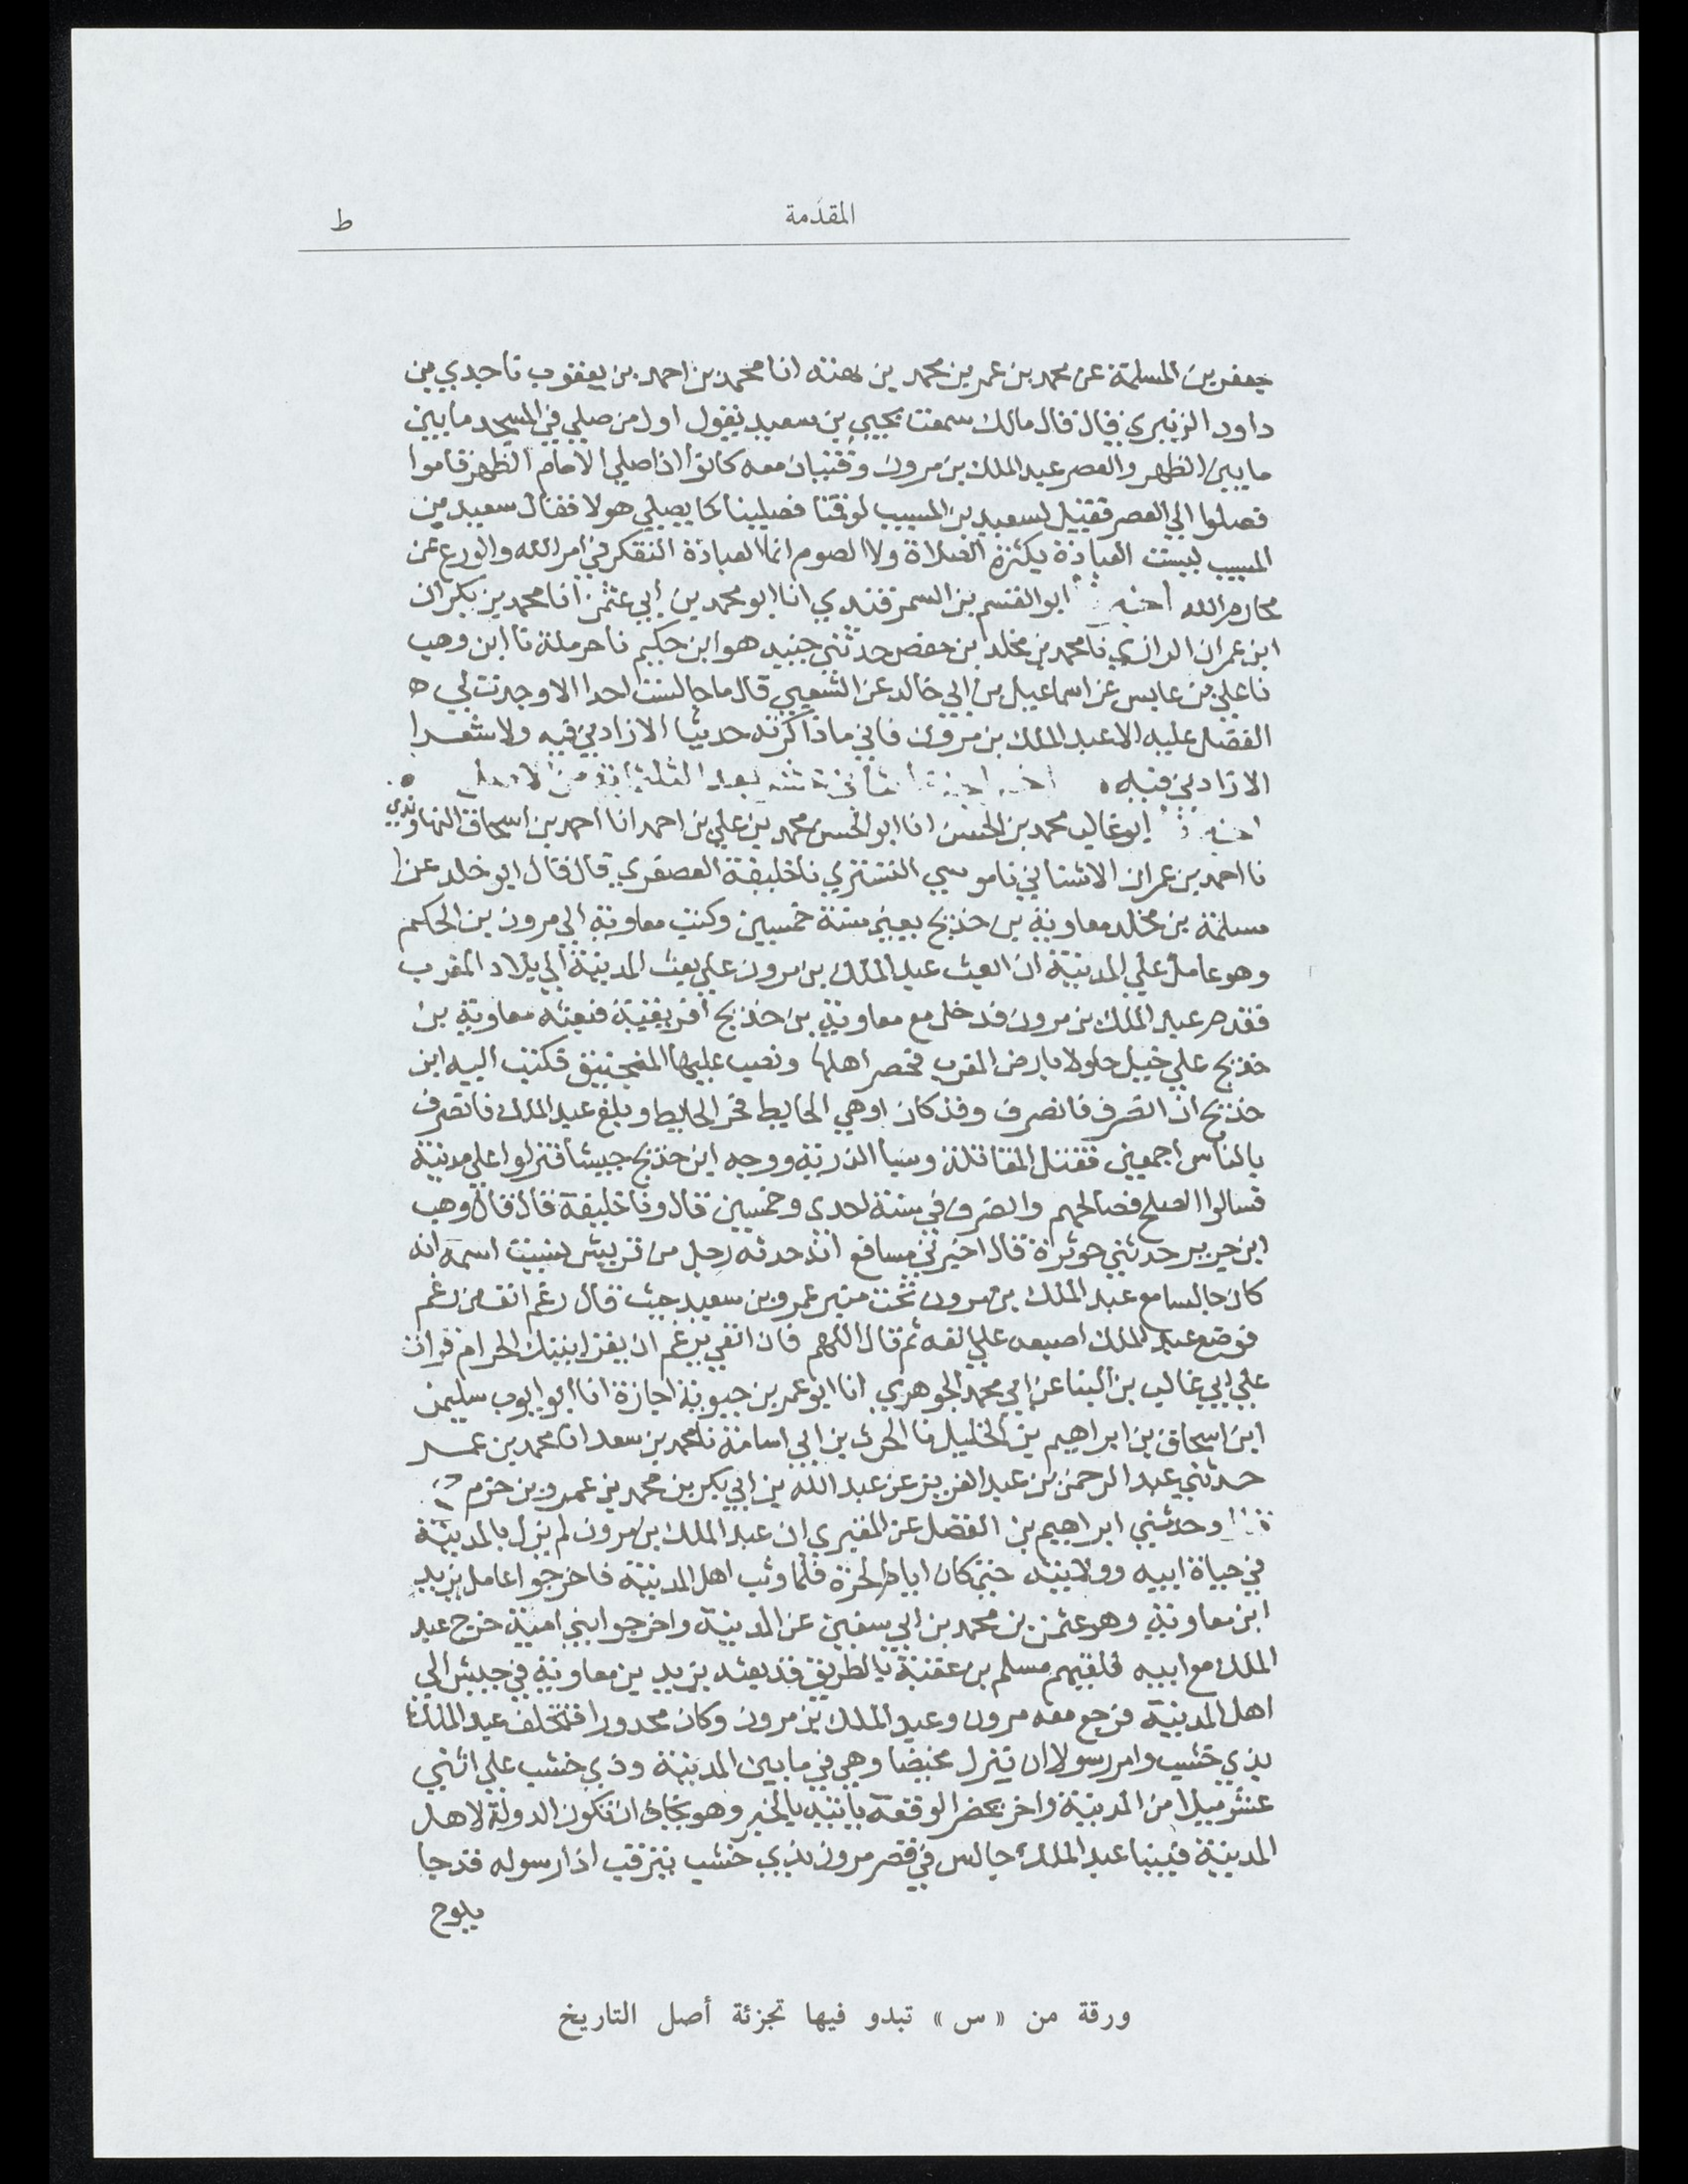 المقدّمة
ط
جعفر بن المسلمة عن محمد بن عمر بن محمد بن بهته انا محمد بن احمد بن يعقوب نا جدي بن
داود الزنبري قال قال مالك سمعت يحيي بن سعيد يقول اول من صلي في المسجد ما بين
ما بين الظهر والعصر عبد الملك بن مرون وفتيان معه كانوا اذا صلي الامام الظهر قاموا
فصلوا الي العصر فقيل لسعيد بن المسيب لو قمنا فصلينا كما يصلي هولا فقال سعيد بن
المسيب ليست العبادة بكثرة الصلاة ولا الصوم انما العبادة التفكر في امر الله والورع عن
محارم الله ابو القسم بن السمرقندي انا ابو محمد بن أبي عثمن انا محمد بن بكران
ابن عمران الرازي نا محمد بن مخلد بن حفص حدثني جنيد هو ابن حكيم نا حرملة نا ابن وهب
نا علي بن عابس عن اسماعيل بن ابي خالد عن الشعبي قال ما جالست احدا الا وجدت لي ه
الفضل عليه الا عبد الملك بن مرون فاني ما ذاكرته حديثا الا زادني فيه ولا شعرا
الا زادني فيه ه بعد الثلثمائة من الاصل
ابو غالب محمد بن الحسن انا ابو الحسن محمد بن علي بن احمد انا احمد بن اسحاق النهاوندي
نا احمد بن عمران الاشناني نا موسي التستري نا خليفة العصفري قال قال ابو خالد عزا
مسلمة بن مخلد معاوية بن حديج يعني سنة خمسين وكتب معاوية الي مرون بن الحكم
وهو عامل علي المدينة ان ابعث عبد الملك بن مرون علي بعث المدينة الي بلاد المغرب
فقدم عبد الملك بن مرون فدخل مع معاوية بن حديج افريقية فبعثه معاوية بن
حديج علي خيل جلولا بارض المغرب فحصر اهلها ونصب عليها المنجنيق فكتب اليه ابن
حديج ان انصرف فانصرف وقد كان اوهي الحايط فخر الحايط وبلغ عبد الملك فانصرف
بالناس اجمعين فقتل المقاتلة وسبا الذرية ووجه ابن حديج جيشا فنزلوا علي مدينة
فسالوا الصلح فصالحهم وانصرف في سنة احدي وخمسين قال ونا خليفة قال قال وهب
ابن جرير حدثني جويرة قال اخبرني مسافع انه حدثه رجل من قريش نسيت اسمه انه
كان جالسا مع عبد الملك بن مرون تحت منبر عمرو بن سعيد حيث قال رغم انف من رغم
فوضع عبد الملك اصبعه علي انفه ثم قال اللهم فان انفي يرغم ان يغزا بيتك الحرام قرات
علي ابي غالب بن البنا عن ابي محمد الجوهري انا ابو عمر بن حيوية اجازة انا ابو ايوب سليمن
ابن اسحاق بن ابراهيم بن الخليل نا الحرث بن ابي اسامة نا محمد بن سعد انا محمد بن عمر
حدثني عبد الرحمن بن عبد العزيز عن عبد الله بن ابي بكر بن محمد بن عمرو بن حزم
وحدثني ابراهيم بن الفضل عن المقبري ان عبد الملك بن مرون لم يزل بالمدينة
في حياة ابيه وولايته حتي كان ايام الحرة فلما وثب اهل المدينة فاخرجوا عامل يزيد
ابن معاوية وهو عثمن بن محمد بن ابي سفين عن المدينة واخرجوا بني امية خرج عبد
الملك مع ابيه فلقيهم مسلم بن عقبة بالطريق قد بعثه يزيد بن معاوية في جيش الي
اهل المدينة فرجع معه مرون وعبد الملك بن مرون وكان مجدورا فتخلف عبد الملك
بذي خشب وامر رسولا ان ينزل مخيضا وهي في ما بين المدينة وذي خشب علي اثني
عشر ميلا من المدينة واخر يحضر الوقعة ياتيه بالخبر وهو يخاف ان تكون الدولة لاهل
المدينة فبينا عبد الملك جالس في قصر مرون بذي خشب يترقب اذا رسوله قد جا
يلوح
ورقة من « س » تبدو فيها تجزئة أصل التاريخ